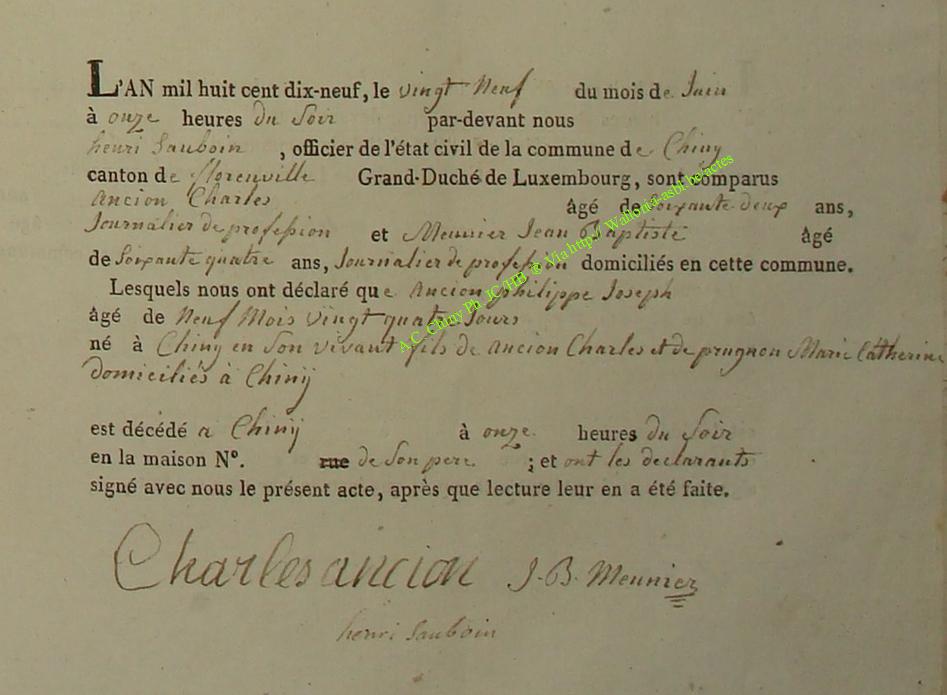 L'AN mil huit cent dix-neuf, le vingt Neuf du mois de Juin
à onze heures du Soir par-devant nous
henri Sauboin , officier de l'état civil de la commune de Chiny
canton de florenville Grand-Duché de Luxembourg, sont comparus
Ancion Charles âgé de Soixante deux ans,
Journalier de profession et Meunier Jean Baptiste âgé
de Soixante quatre ans, Journalier de profession domiciliés en cette commune.
Lesquels nous ont déclaré que Ancion philippe Joseph
âgé de Neuf Mois vingt quatre Jours
né à Chiny en Son vivant fils de Ancion Charles et de prugnon Marie Catherine
domiciliés à Chinÿ
est décédé a Chinÿ à onze heures du Soir
en la maison N°. rue de Son pere ; et ont les declarants
signé avec nous le présent acte, après que lecture leur en a été faite.
Charles ancion J. B. Meunier
henri Sauboin
A.C. Chiny Ph. JC/HB ® Via http:// Wallonia-asbl.be/actes